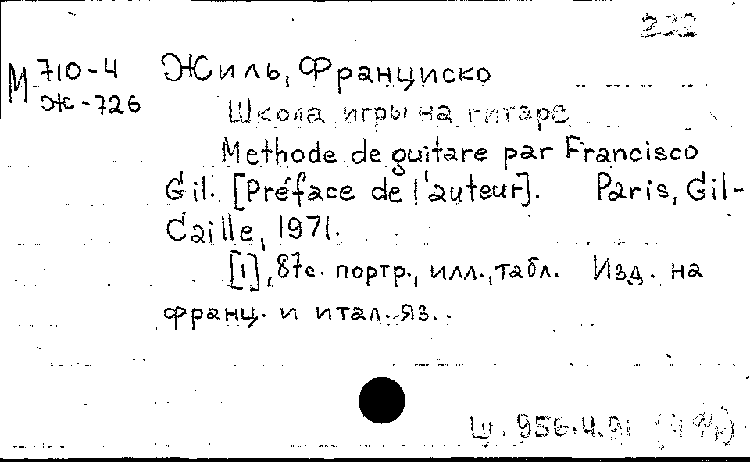 222
М 710-4 Жиль, Франциско
Ж-726
Школа игры на гитаре
Methode de guitare par Francisco
Gil. [Préface de l'auteur]. Paris, Gil-
Caille, 1971.
[1], 87с. портр., илл., табл. Изд. на
франц. и итал. яз.
Ш. 956.4.91